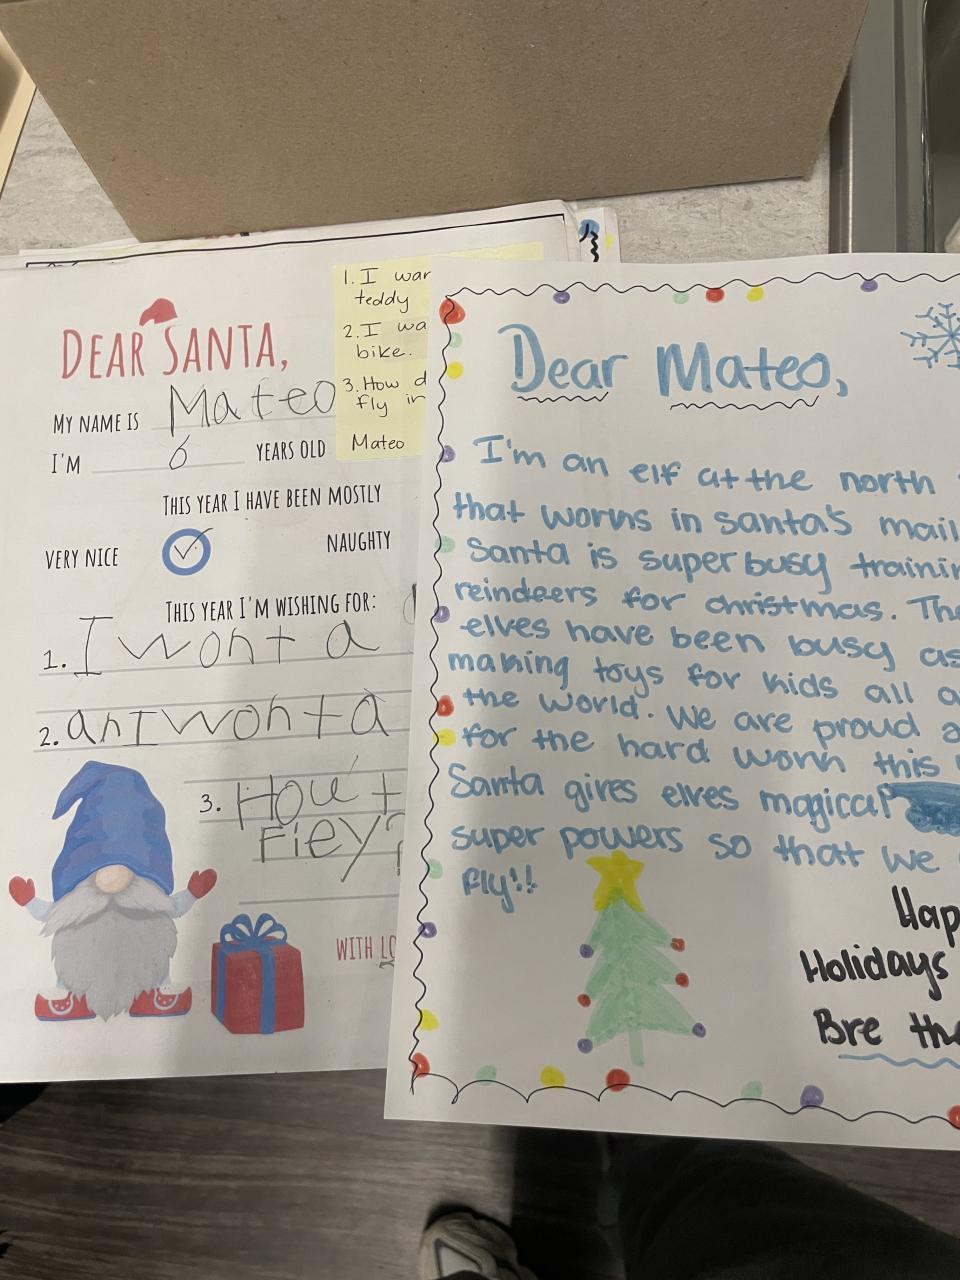 DEAR SANTA,
MY NAME IS Mateo
I'M 6 YEARS OLD
THIS YEAR I HAVE BEEN MOSTLY
VERY NICE NAUGHTY
THIS YEAR I'M WISHING FOR:
1. I wont a
2. an I wont a
3. How t
Fiey?
WITH LO
1. I wan
teddy
2. I wa
bike.
3. How d
fly in
Mateo
Dear Mateo,
I'm an elf at the north
that works in santa's mail
Santa is super busy trainin
reindeers for christmas. The
elves have been busy as
making toys for kids all a
the world. We are proud o
for the hard work this
Santa gives elves magical
super powers so that we
fly!!
Hap
Holidays
Bre the